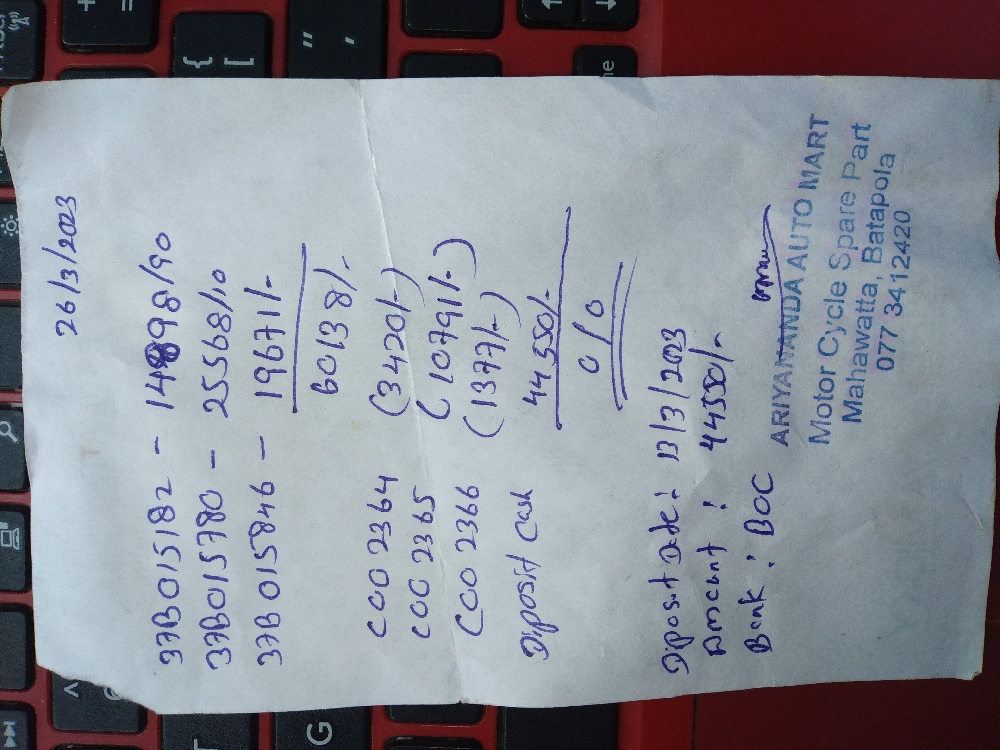 26/3/2023
37B015182 - 14898/90
37B015780 - 25568/10
37B015846 - 19671/-
60138/-
COO 2364 (3420/-)
COO 2365 (10791/-)
COO 2366 (1377/-)
Diposit Cash 44550/-
0/0
Diposit Date: 13/3/2023
Amount : 44550/-
Bank : BOC
ARIYANANDA AUTO MART
Motor Cycle Spare Part
Mahawatta, Batapola
077 3412420